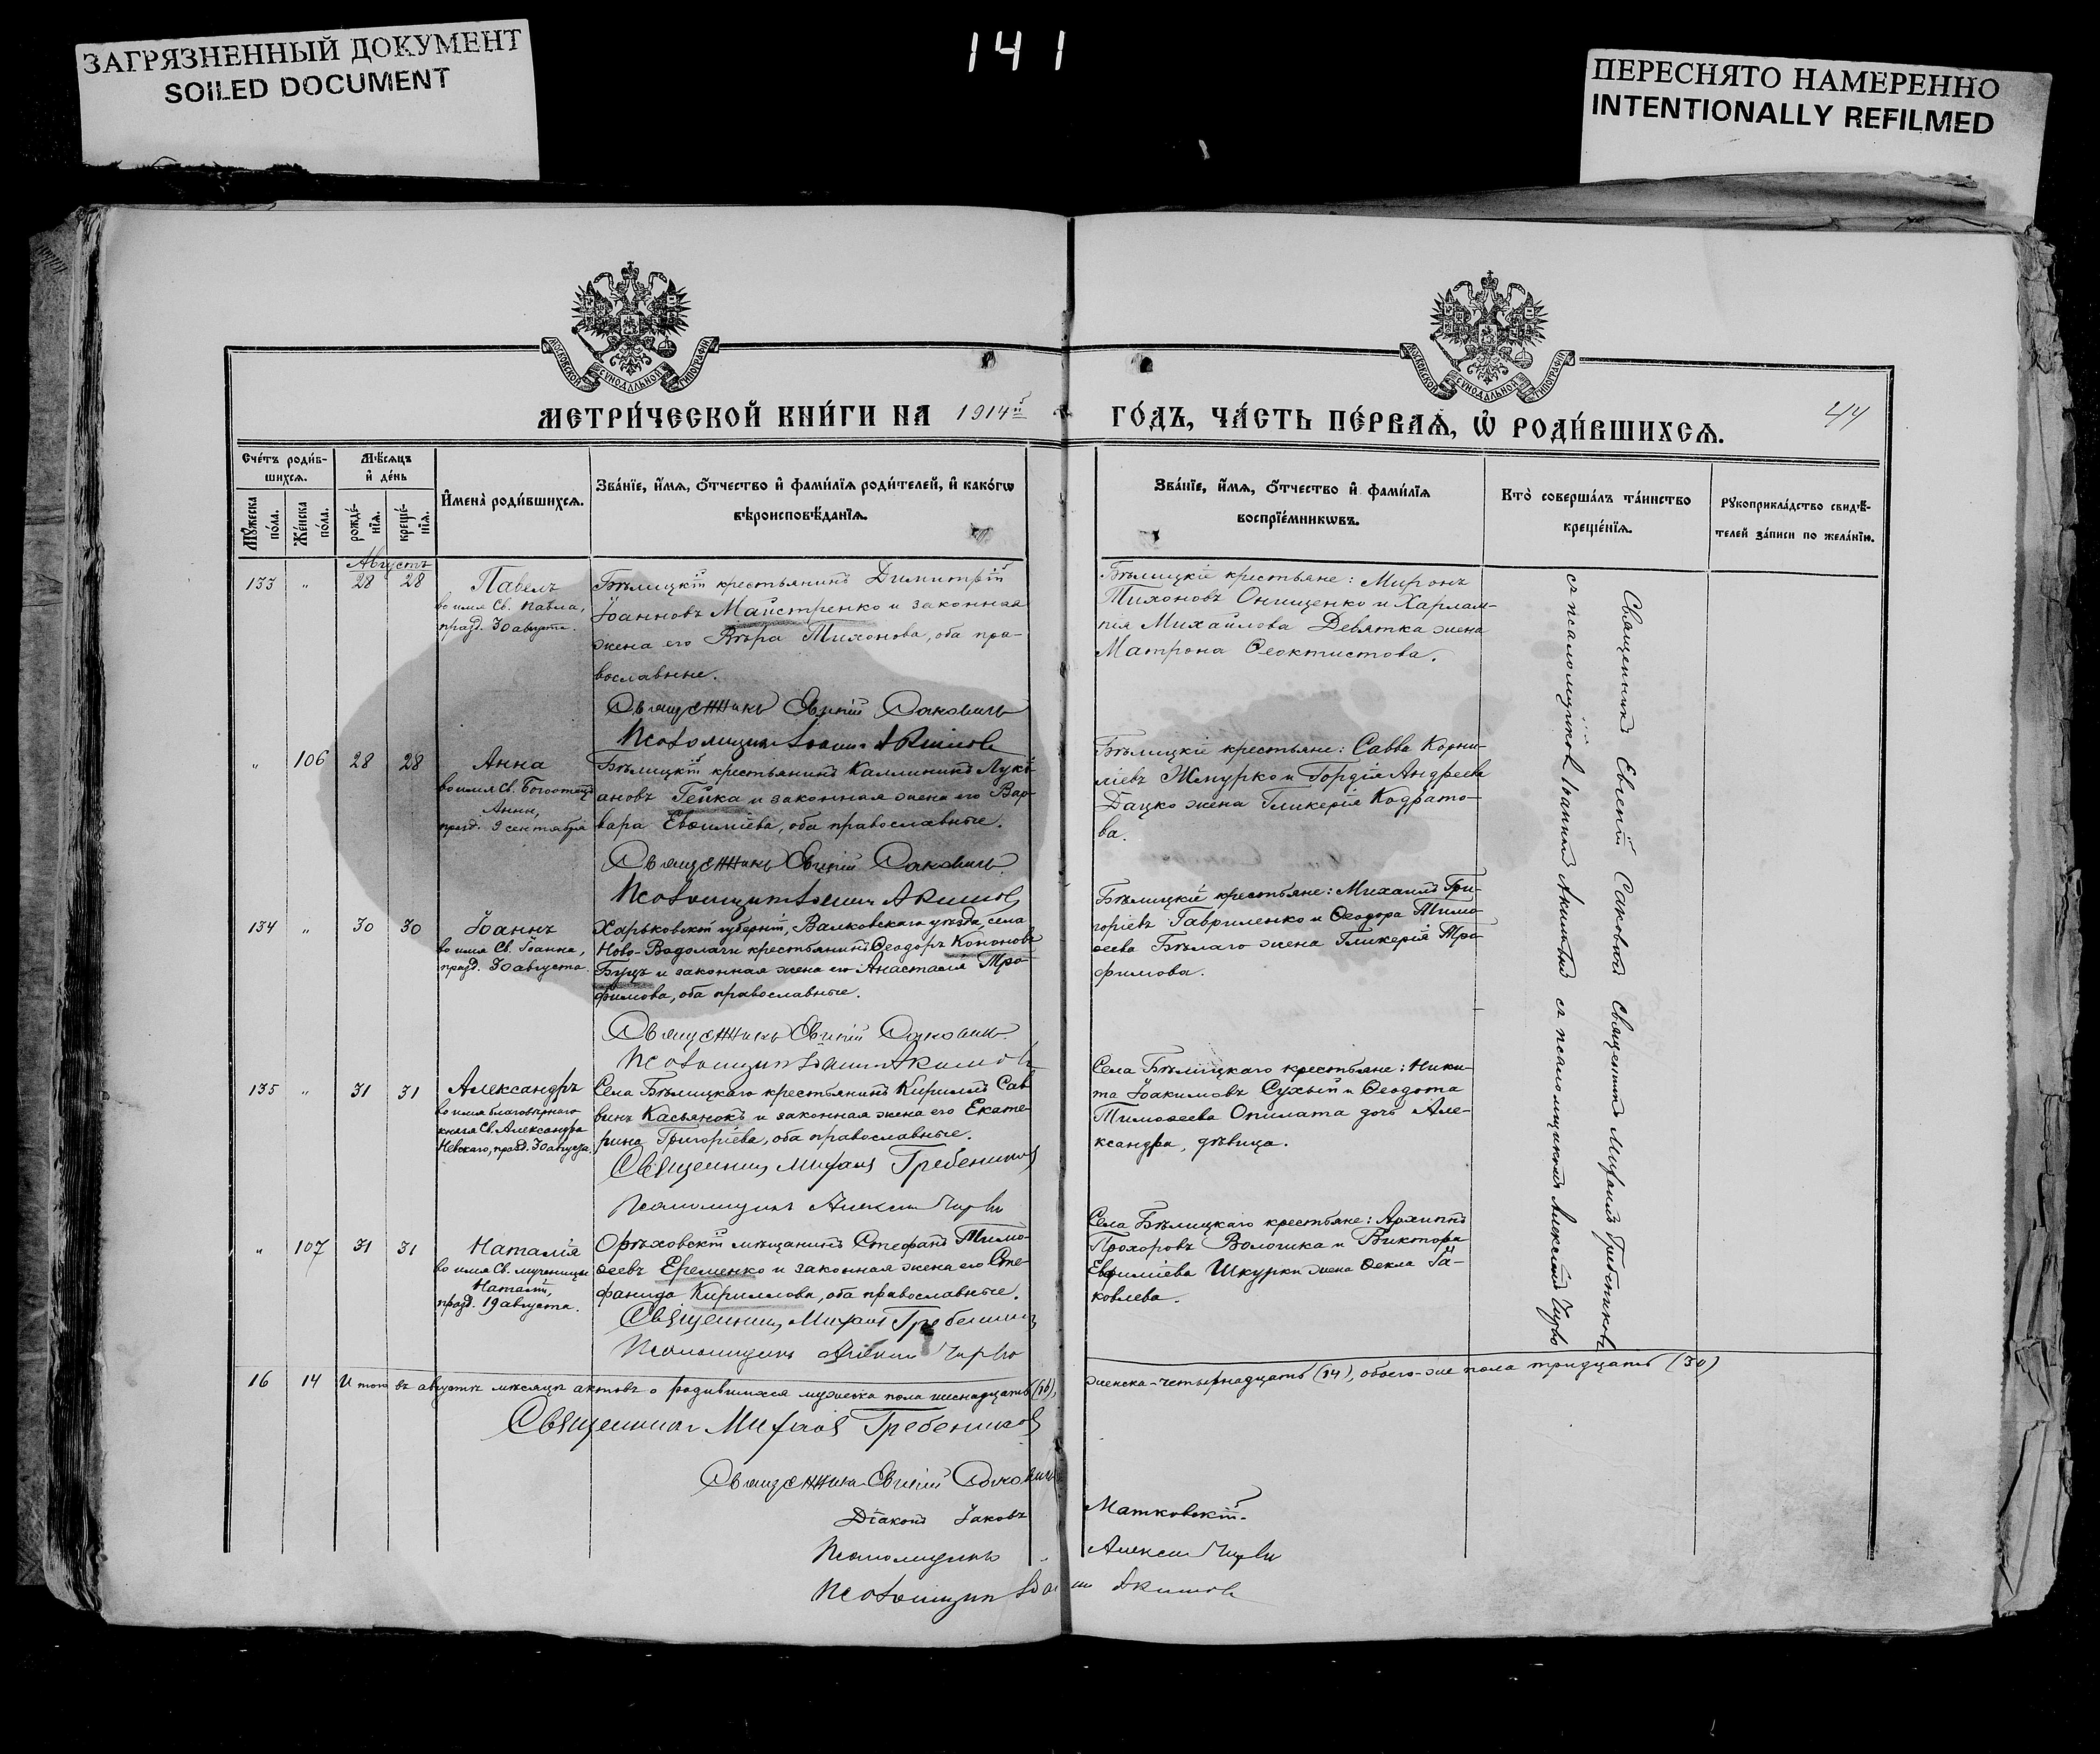 ЗАГРЯЗНЕННЫЙ ДОКУМЕНТ
SOILED DOCUMENT
141
ПЕРЕСНЯТО НАМЕРЕННО
INTENTIONALLY REFILMED
МОСКОВСКОЙ СѴНОДАЛЬНОЙ ТИПОГРАФІИ
МОСКОВСКОЙ СѴНОДАЛЬНОЙ ТИПОГРАФІИ
МЕТРИ́ЧЕСКОЙ КНИ́ГИ НА 1914й
ГО́ДЪ, ЧА́СТЬ ПЕ́РВАѦ, Ѡ҆ РОДИ́ВШИХСѦ.
44
Сче́тъ роди́в-
шихсѧ.
Мѣ́сѧцъ
и҆ де́нь
Мꙋ́жеска
по́ла.
Же́нска
по́ла.
рожде́-
нїѧ.
креще́-
нїѧ.
И҆мена̀ роди́вшихсѧ.
Зва́нїе, и҆́мѧ, ѻ҆́тчество и҆ фами́лїѧ роди́телей, и҆ како́гѡ
вѣроисповѣ́данїѧ.
Зва́нїе, и҆́мѧ, ѻ҆́тчество и҆ фами́лїѧ
воспрїе́мникѡвъ.
Кто̀ соверша́лъ та́инство
креще́нїѧ.
Рꙋкоприкла́дство свидѣ́-
телей за́писи по жела́нїю.
Августъ
133 " 28 28
Павелъ
во имя Св. Павла,
празд. 30 августа.
Бѣлицкій крестьянинъ Димитрій
Іоанновъ Майстренко и законная
жена его Вѣра Тихонова, оба пра-
вославные.
Священникъ Евгеній Сакович
Псаломщикъ Іоаннъ Акимовъ
Бѣлицкіе крестьяне: Миронъ
Тихоновъ Онищенко и Харлам-
пія Михайлова Девятка жена
Матрона Ѳеоктистова.
" 106 28 28
Анна
во имя Св. Богоотецъ
Анны,
празд. 9 сентября
Бѣлицкій крестьянинъ Каллиникъ Луки-
ановъ Гейка и законная жена его Вар-
вара Евѳиміева, оба православные.
Священникъ Евгеній Сакович
Псаломщикъ Іоаннъ Акимовъ
Бѣлицкіе крестьяне: Савва Корни-
ліевъ Жмурко и Гордія Андреева
Дацко жена Гликерія Кодрато-
ва.
134 " 30 30
Іоаннъ
во имя Св. Іоанна,
празд. 30 августа.
Харьковской губерніи, Валковскаго уѣзда, села
Ново-Водолаги крестьянинъ Ѳеодоръ Кононовъ
Буцъ и законная жена его Анастасія Тро-
фимова, оба православные.
Священникъ Евгеній Сакович
Псаломщикъ Іоаннъ Акимовъ
Бѣлицкіе крестьяне: Михаилъ Гри-
горіевъ Гавриленко и Ѳеодора Тимо-
ѳеева Бѣлаго жена Гликерія Тро-
фимова.
135 " 31 31
Александръ
во имя благовѣрнаго
князя Св. Александра
Невскаго, празд. 30 августа.
Села Бѣлицкаго крестьянинъ Кириллъ Сав-
винъ Касьянокъ и законная жена его Екате-
рина Григоріева, оба православные.
Священникъ Михаилъ Гребениковъ
Псаломщикъ Алексій
Села Бѣлицкаго крестьяне: Ники-
та Іоакимовъ Сухый и Ѳеодота
Тимоѳеева Опилата дочь Але-
ксандра, дѣвица.
" 107 31 31
Наталія
во имя Св. мученицы
Наталіи,
празд. 19 августа.
Орѣховскій мѣщанинъ Стефанъ Тимо-
ѳеевъ Еременко и законная жена его Сте-
фанида Кириллова, оба православные.
Священникъ Михаилъ Гребениковъ
Псаломщикъ Алексій
Села Бѣлицкаго крестьяне: Архиппъ
Прохоровъ Волошка и Виктора
Евѳиміева Шкурки жена Ѳекла Іа-
ковлева.
Священникъ Евгеній Саковичъ Священникъ Михаилъ Гребениковъ
съ псаломщикомъ Іоанномъ Акимовымъ съ псаломщикомъ Алексѣемъ
16 14 Итого въ августѣ мѣсяцѣ актовъ о родившихся мужеска пола шеснадцать (16),
женска-четырнадцать (14), обоего-же пола тридцать (30)
Священникъ Михаилъ Гребениковъ
Священникъ Евгеній Сакович
Діаконъ Іаковъ Матковскій.
Псаломщикъ Алексій
Псаломщикъ Іоаннъ Акимовъ